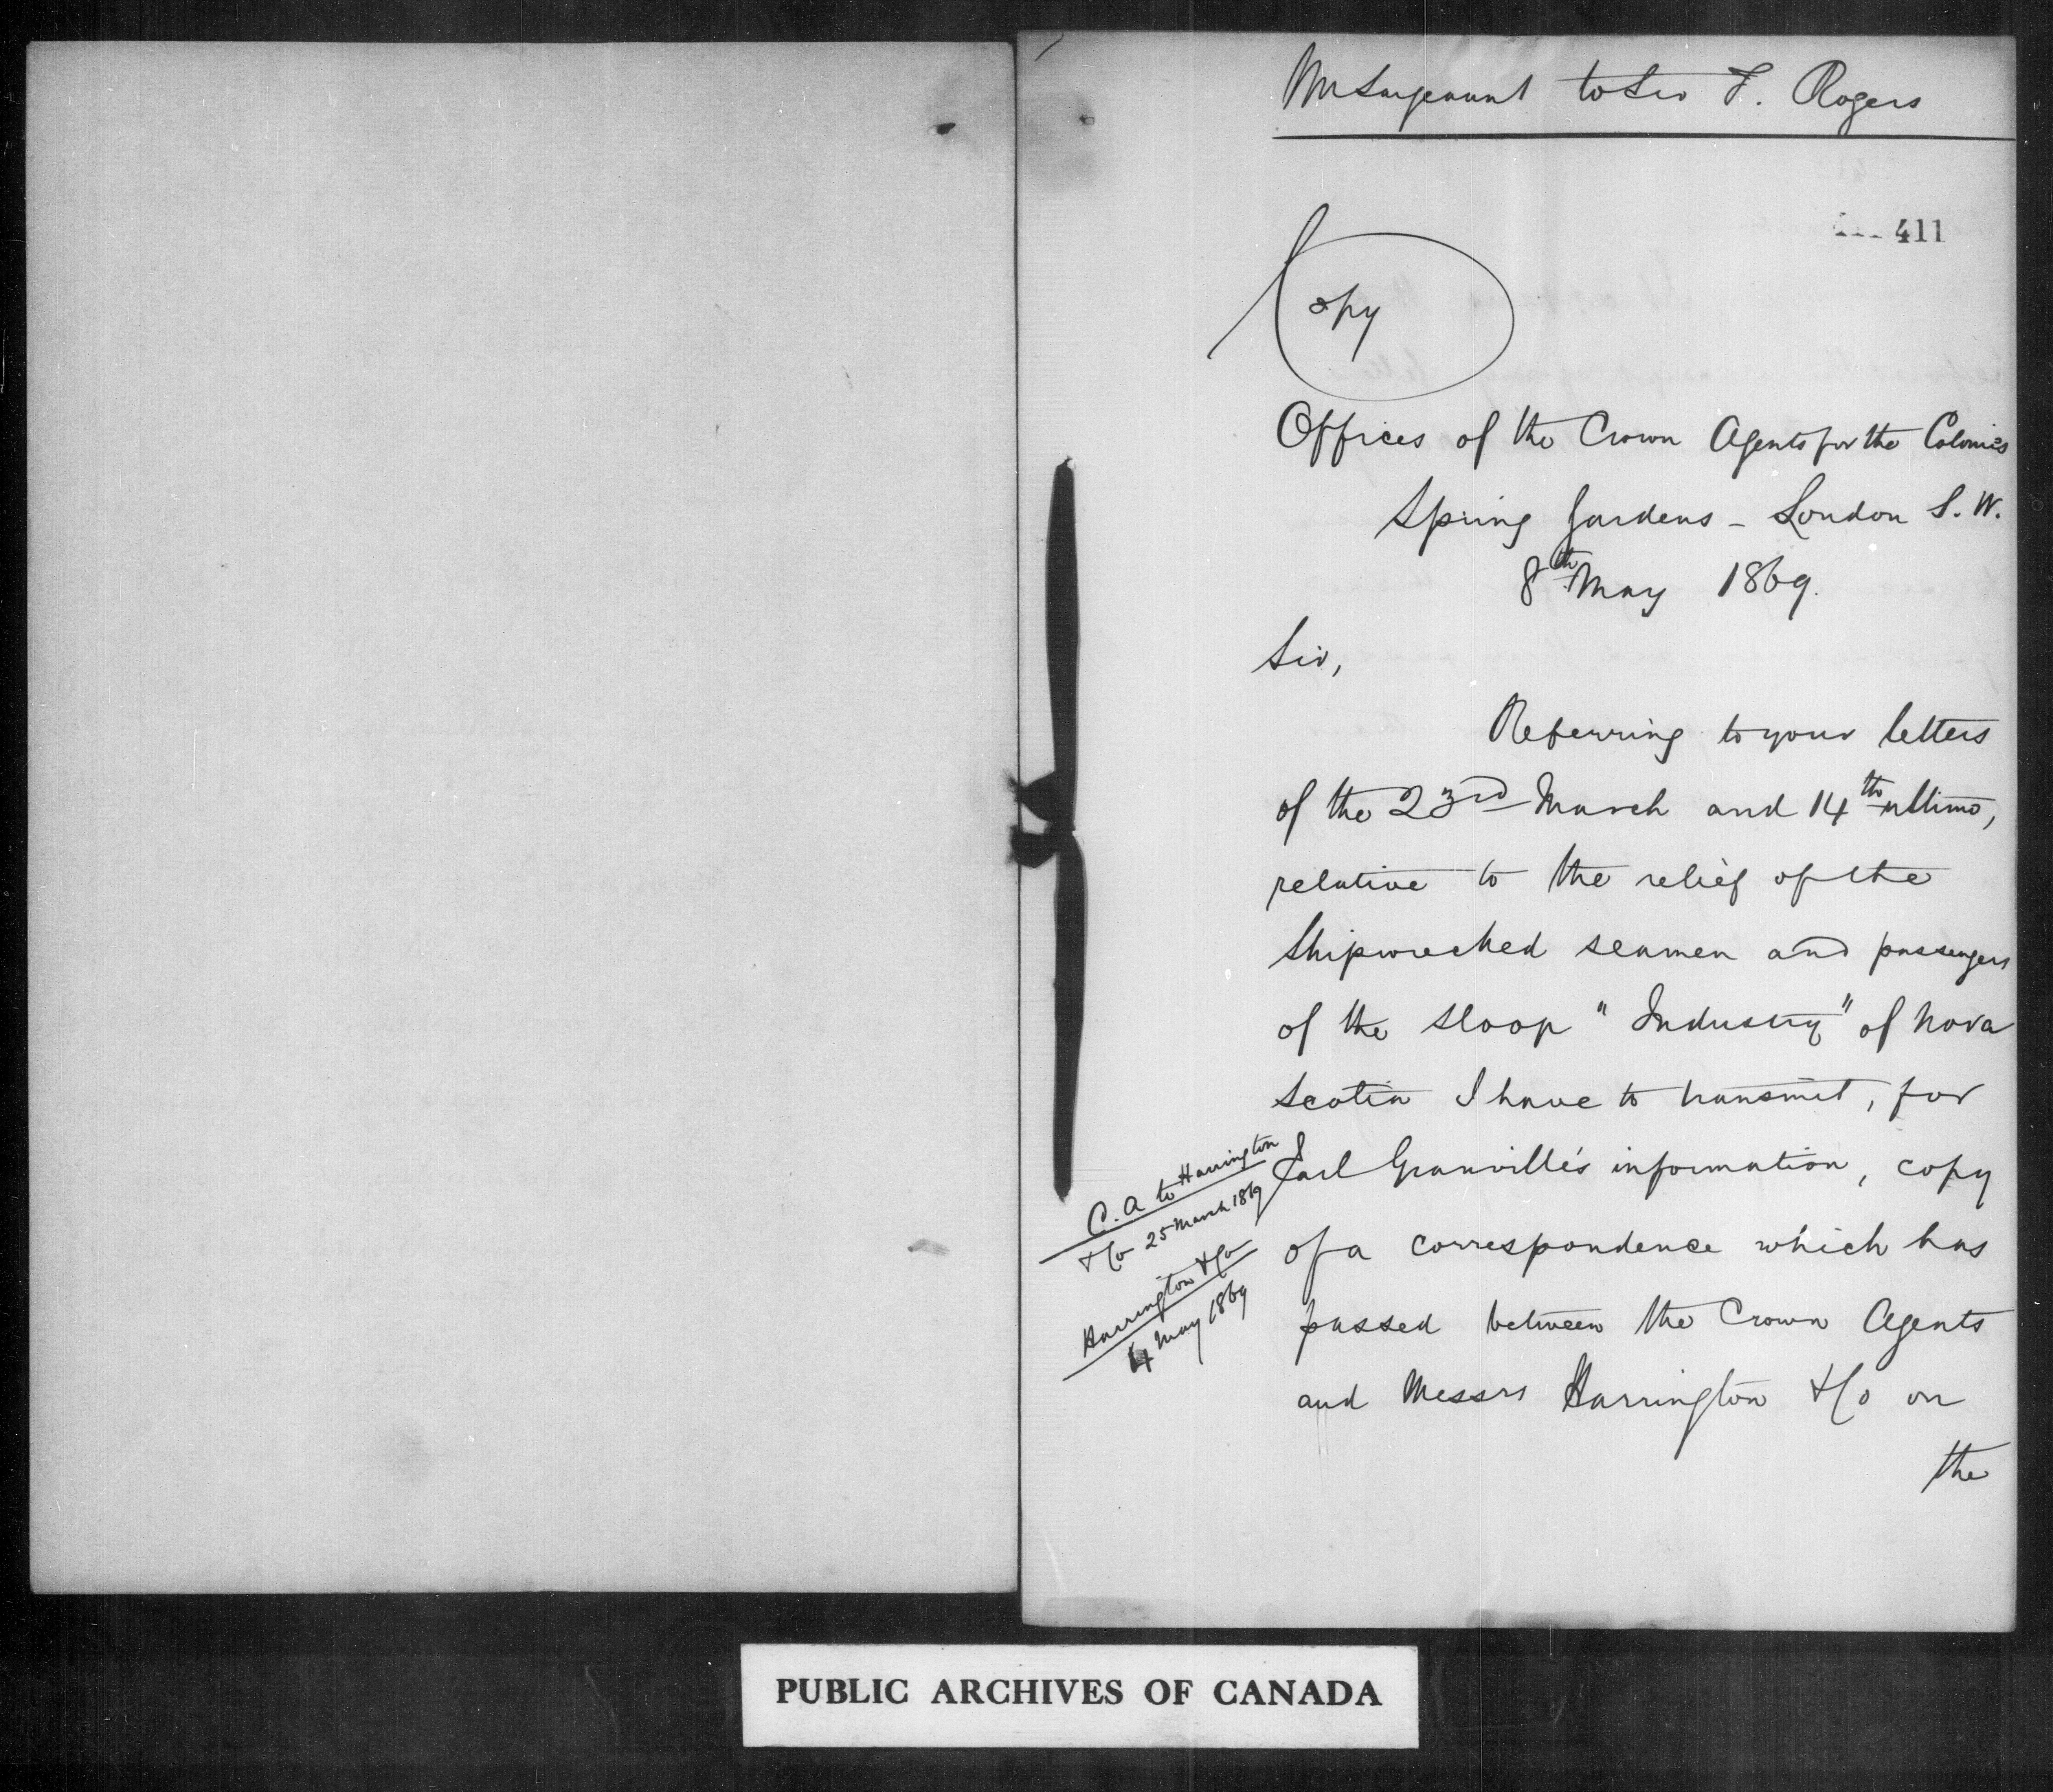 Mr Sargeaunt to Sir F. Rogers
411
Copy
Offices of the Crown Agents for the Colonies
Spring Gardens - London S.W.
8th May 1869.
Sir,
Referring to your letters
of the 23rd March and 14th ultimo,
relative to the relief of the
Shipwrecked seamen and passengers
of the sloop "Industry" of Nova
Scotia I have to transmit, for
Earl Granville's information, copy
of a correspondence which has
passed between the Crown Agents
and Messrs Harrington & Co on
the
C. A to Harrington
& Co 25 March 1869
Harrington & Co
4 May 1869
PUBLIC ARCHIVES OF CANADA